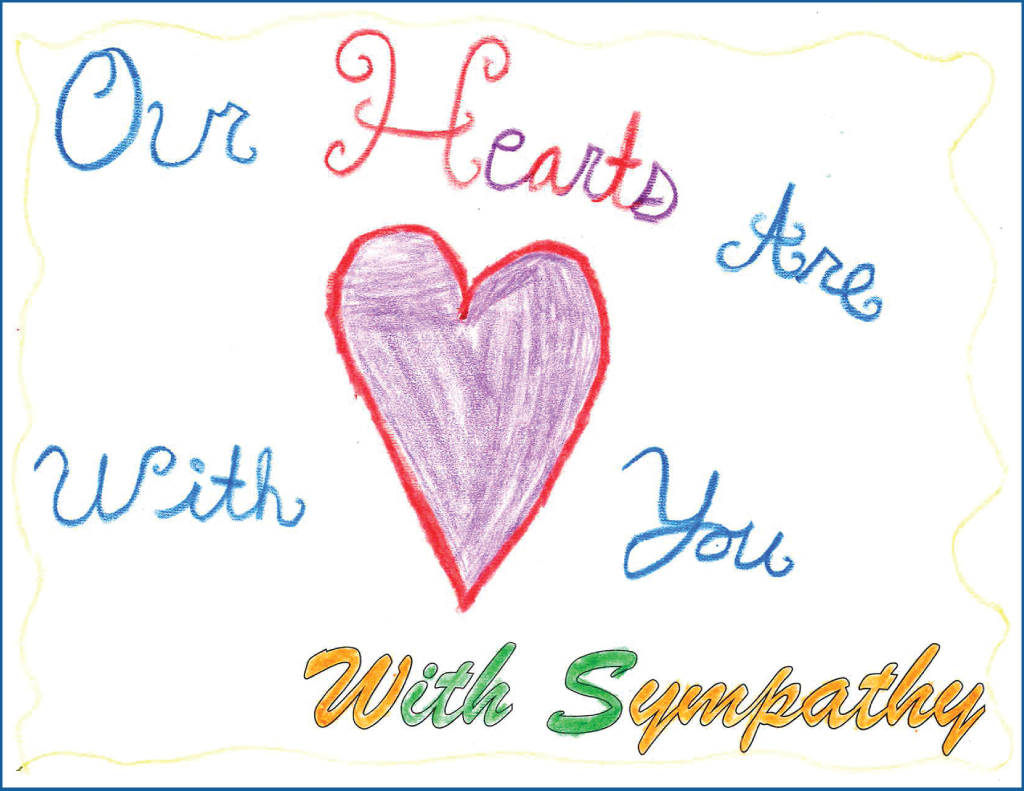 Our Hearts Are
With You
With Sympathy